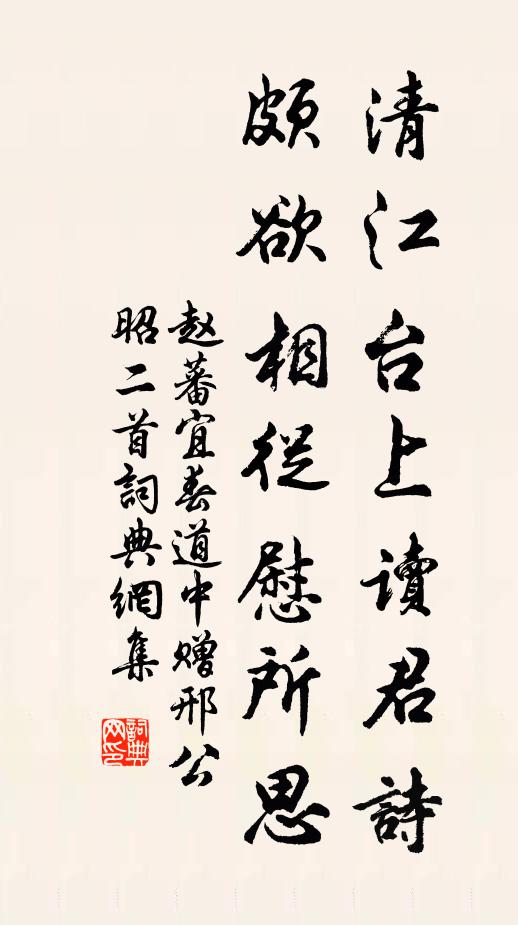 清江台上讀君詩
頗欲相從慰所思
赵蕃宜春道中赠邢公
昭二首詞典網集
詞典网印